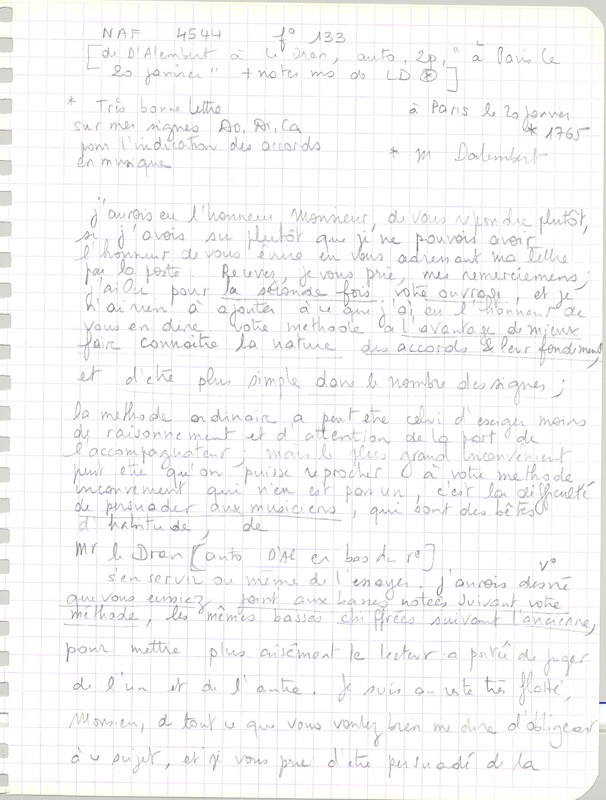 NAF 4544 f° 133
[de D'Alembert à Le Dran, auto, 2p, "à Paris ce
20 janvier" + notes ms de LD *]
* Très bonne lettre
sur mes signes Ao, Ai, Ca
pour l'indication des accords
en musique
à Paris le 20 janvier
* 1765
* M Dalembert
"
j'aurois eu l'honneur Monsieur, de vous repondre plutôt,
si j'avois su plutôt que je ne pouvois avoir
l'honneur de vous écrire en vous adressant ma lettre
par la poste. Recevez, je vous prie, mes remerciemens;
j'ai lu pour la seconde fois votre ouvrage, et je
n'ai rien à ajouter à ce que j'ai eu l'honneur de
vous en dire. Votre methode a l'avantage de mieux
faire connoître la nature des accords & leur fondement,
et d'etre plus simple dans le nombre des signes;
la methode ordinaire a peut etre celui d'exiger moins
de raisonnement et d'attention de la part de
l'accompagnateur; mais le plus grand inconvenient
peut etre qu'on puisse reprocher à votre methode
inconvenient qui n'en est pas un, c'est la difficulté
de persuader aux musiciens, qui sont des bêtes
d'habitude, de
Mr le Dran [auto D'Al en bas du r°]
v°
s'en servir ou même de l'essayer. J'aurois desiré
que vous eussiez joint aux basses notées suivant votre
méthode, les mêmes basses chiffrées suivant l'ancienne,
pour mettre plus aisément le lecteur a portée de juger
de l'un et de l'autre. Je suis au reste très flatté,
Monsieur, de tout ce que vous voulez bien me dire d'obligeant
à ce sujet, et je vous prie d'etre persuadé de la